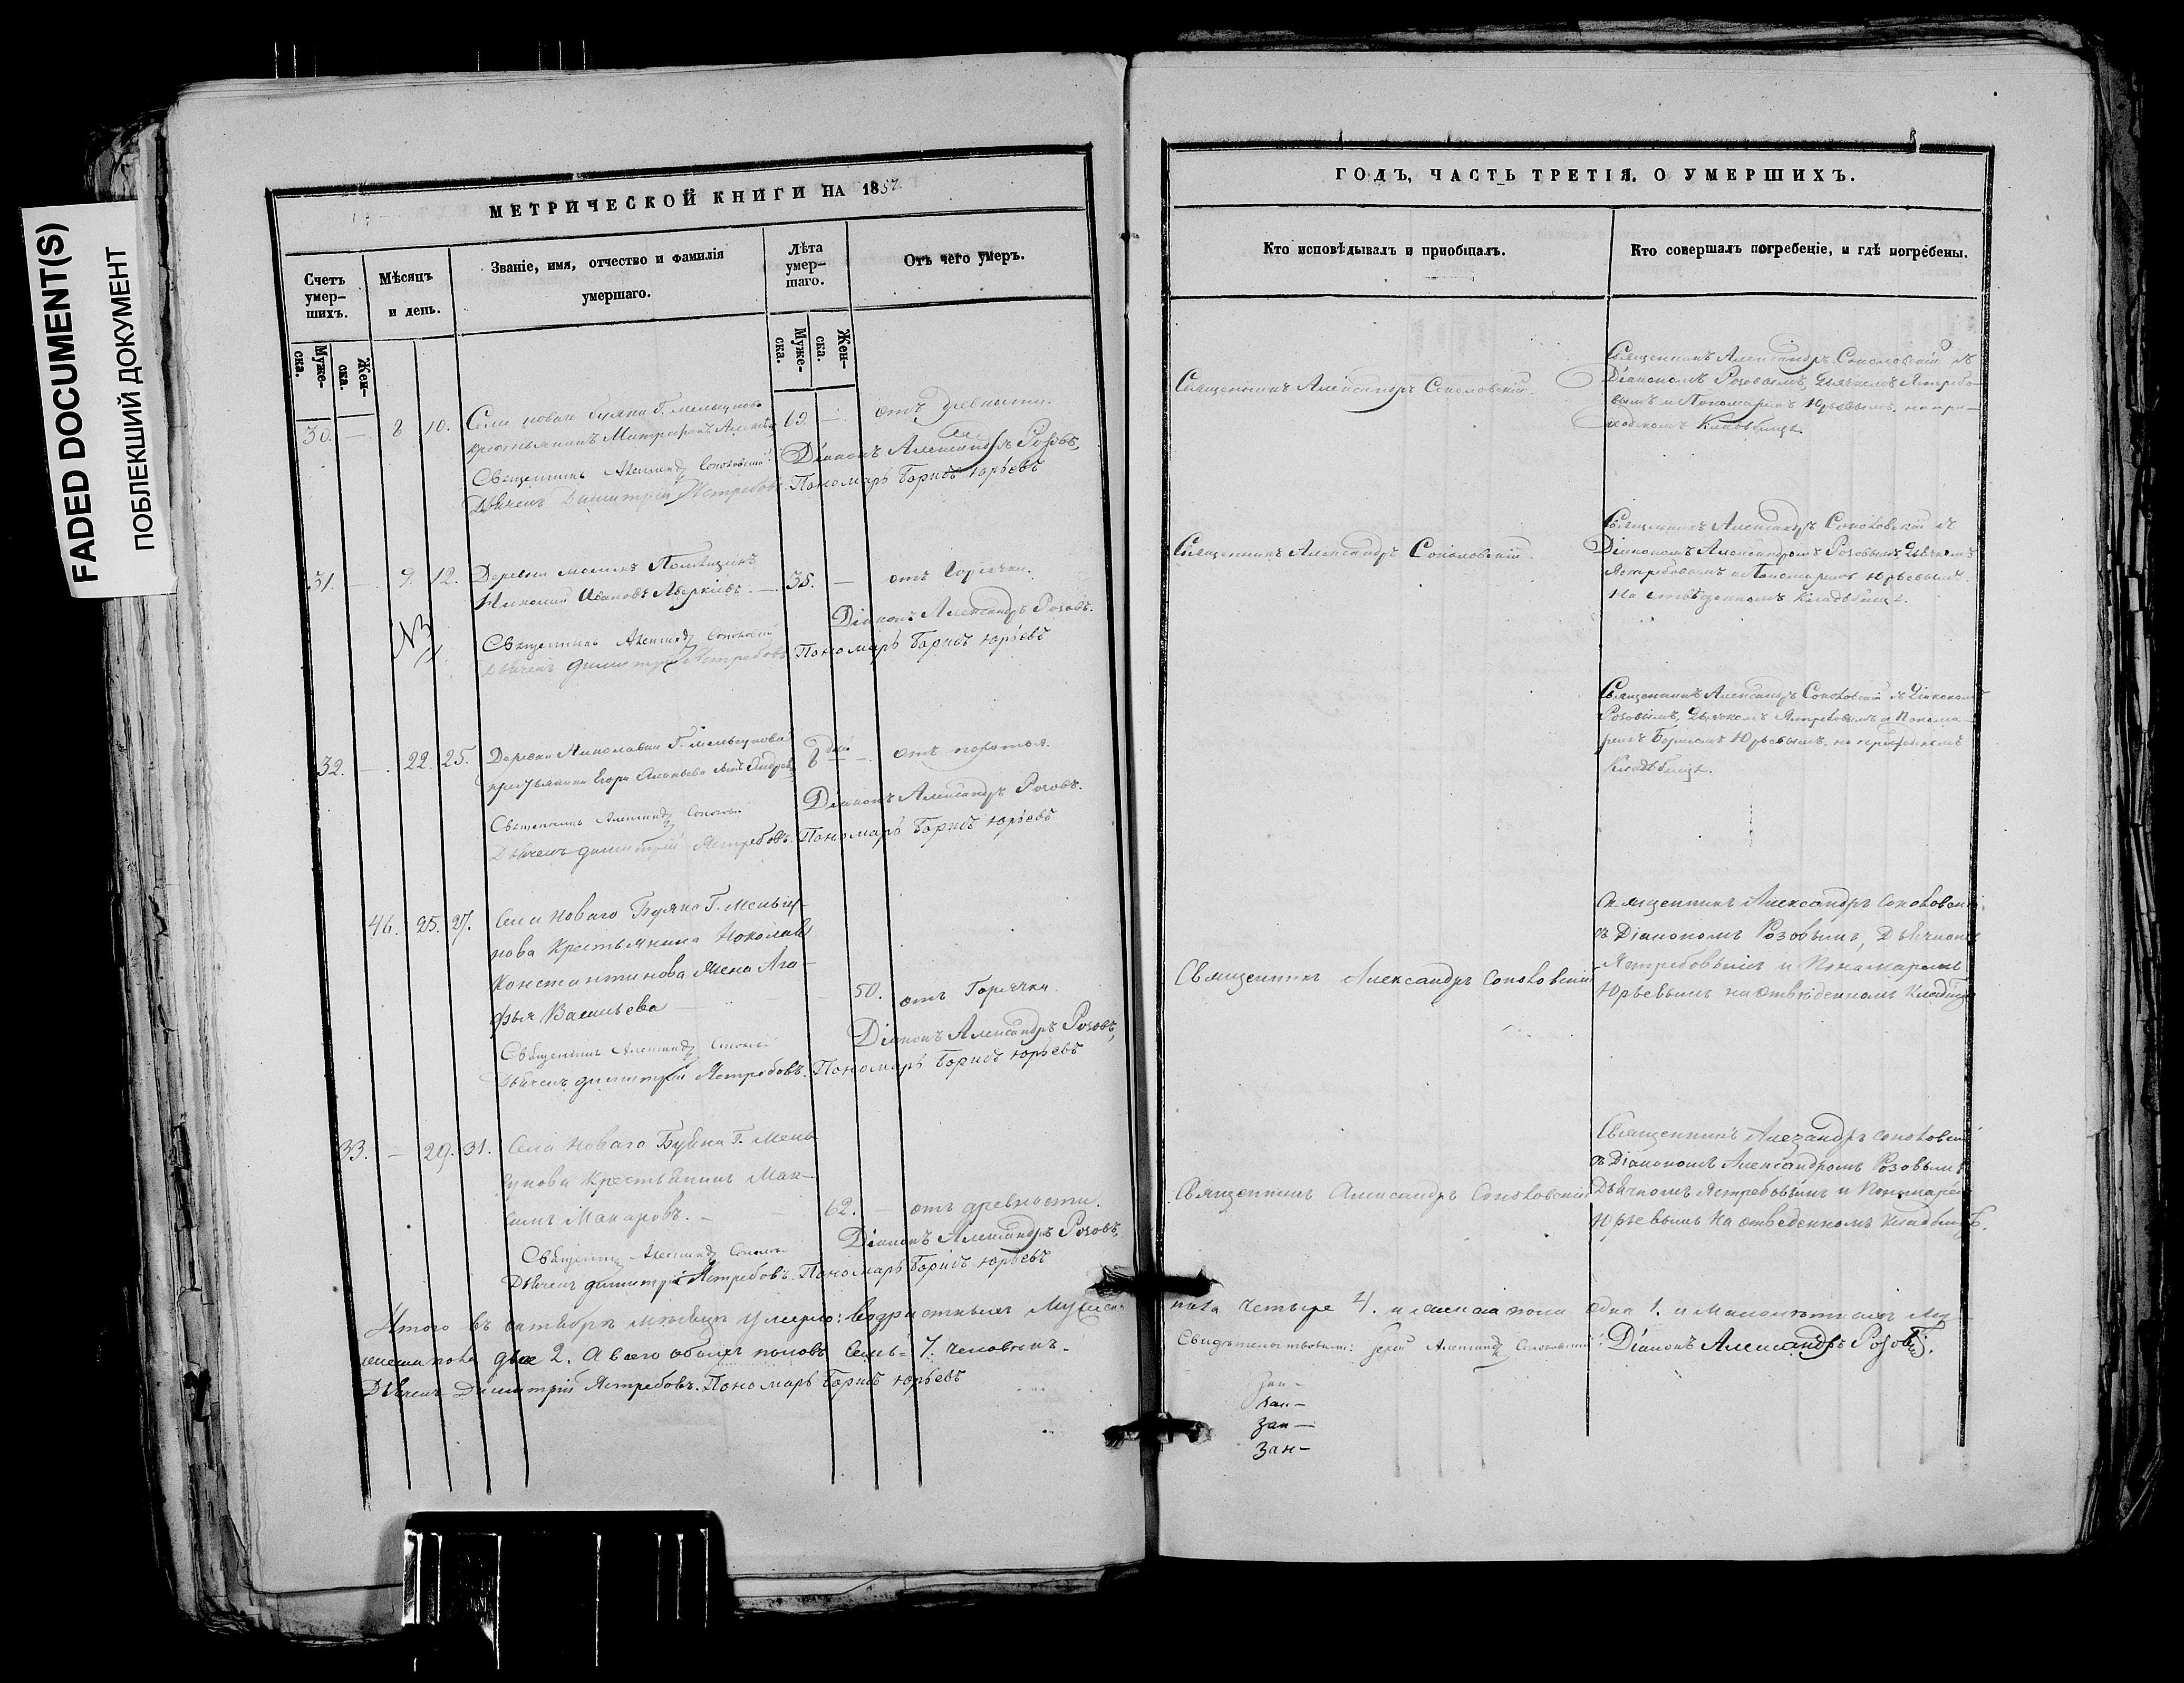 FADED DOCUMENT(S)
ПОБЛЕКШИЙ ДОКУМЕНТ
МЕТРИЧЕСКОЙ КНИГИ НА 1857.
Счетъ умер-
шихъ.
Мѣсяцъ
и день.
Званіе, имя, отчество и фамилія
умершаго.
Лѣта
умер-
шаго.
Отъ чего умеръ.
Муже-
ска.
Жен-
ска.
Муже-
ска.
Жен-
ска.
30. — 8 10. Села новаго Буяна Г. мельгунова 69. — отъ древности.
крестьянинъ Митрофанъ
Священникъ Александр Соколовскій Діаконъ Александръ Розовъ,
Дьячекъ Димитрій Ястребовъ. Пономарь Борисъ Юрьевъ
31. — 9. 12. Деревни 35. — отъ горячки.
Николай Ивановъ Аверкіевъ. —
Діаконъ Александръ Розовъ.
Священникъ Александр Соколовскій
Дьячекъ Димитрій Ястребовъ Пономарь Борисъ Юрьевъ
32. — 22. 25. Деревни Николаевки Г. Мельгунова 8 дней — отъ
крестьянина Егора сынъ Андрей
Діаконъ Александръ Розовъ.
Священникъ Александр
Дьячекъ Димитрій Ястребовъ. Пономарь Борисъ Юрьевъ
46. 25. 27. Села Новаго Буяна Г. Мельгу-
нова Крестьянина
Константинова жена Ага-
фья Васильева 50. отъ Горячки.
Діаконъ Александръ Розовъ,
Священникъ Александр
Дьячекъ Димитрій Ястребовъ. Пономарь Борисъ Юрьевъ
33. — 29. 31. Села Новаго Буяна Г. Мель
гунова Крестьянинъ Мак-
симъ Макаровъ. — 62. — отъ древности.
Діаконъ Александръ Розовъ,
Священник Александр
Дьячекъ Димитрій Ястребовъ. Пономарь Борисъ Юрьевъ
Итого въ октябрѣ мѣсяцѣ умерло: возрастныхъ Мужеска
женска пола двое 2. А всего обоихъ половъ Семь = 7. человѣкъ.
Дьячекъ Димитрій Ястребовъ. Пономарь Борисъ Юрьевъ
ГОДЪ, ЧАСТЬ ТРЕТІЯ. О УМЕРШИХЪ.
Кто исповѣдывалъ и пріобщалъ.
Кто совершалъ погребеніе, и гдѣ погребены.
Священникъ Александръ Соколовскій.
Священникъ Александръ Соколовскій съ
Діакономъ Розовымъ, Дьячкомъ Ястребо-
вымъ и Пономаремъ Юрьевымъ. на при-
ходскомъ Кладбищѣ.
Священникъ Александръ Соколовскій.
Священникъ Александръ Соколовскій съ
Діакономъ Александромъ Розовымъ, Дьячкомъ
Ястребовымъ и Пономаремъ Юрьевымъ.
На отведенномъ Кладбищѣ.
Священникъ Александръ Соколовскій съ Діакономъ
Розовымъ, Дьячкомъ Ястребовымъ и Понома-
ремъ Борисомъ Юрьевымъ. на
Кладбищѣ.
Священникъ Александръ Соколовскій
Священникъ Александръ Соколовскій
съ Діакономъ Розовымъ, Дьячкомъ
Ястребовымъ и Пономаремъ
Юрьевымъ на отведенномъ Кладбищѣ
Священникъ Александръ Соколовскій
Священникъ Александръ Соколовскій
съ Діакономъ Александромъ Розовымъ
Дьячкомъ Ястребовымъ и Пономаремъ
Юрьевымъ На отведенномъ Кладбищѣ.
пола Четыре 4. и женска пола одна 1. и Малолѣтнихъ Му
Свидѣтельствовали: Іерей Александр Соколовскій. Діаконъ Александръ Розовъ.
Зан-
Зан-
Зан-
Зан-